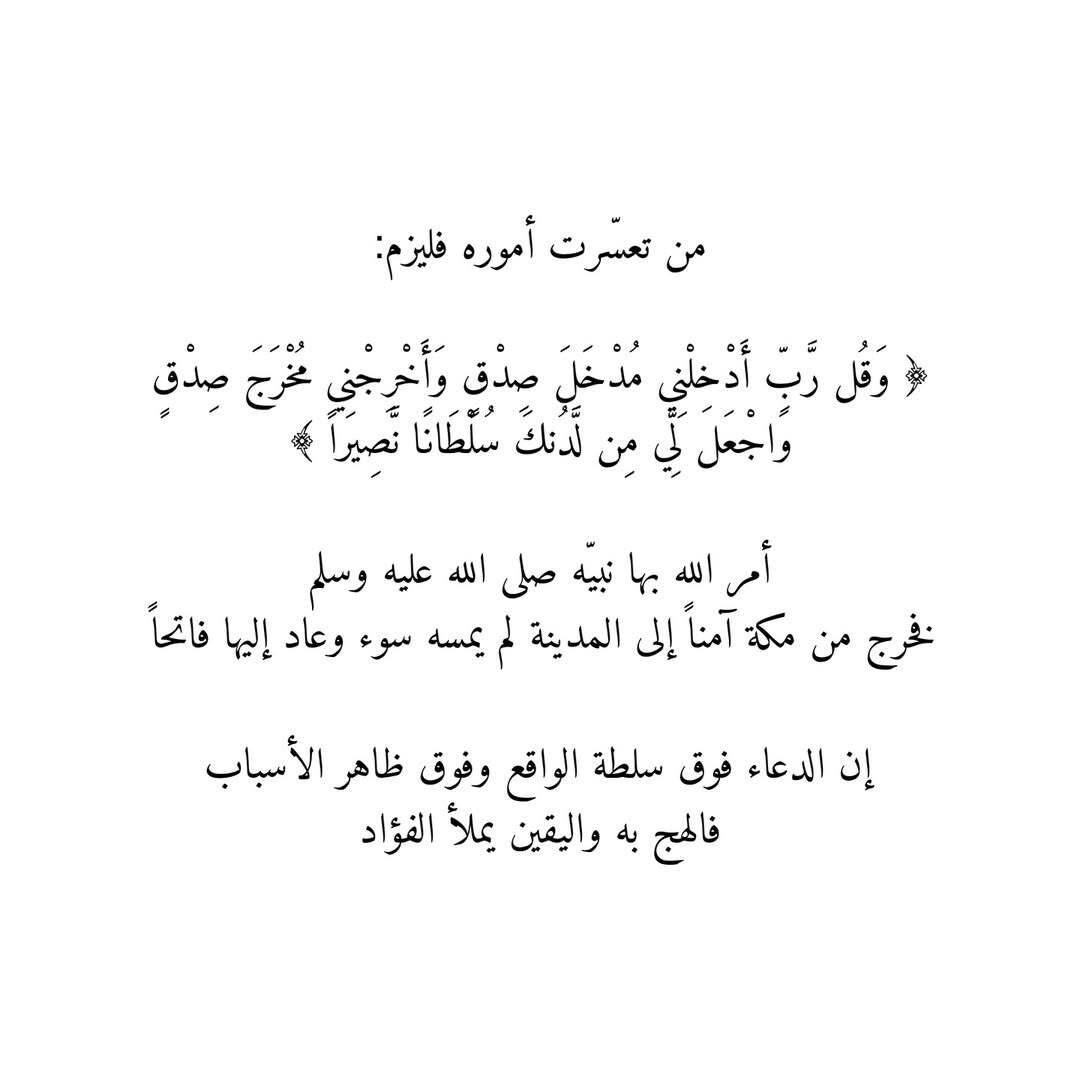 من تعسّرت أموره فليزم:
﴿ وَقُل رَّبِّ أَدْخِلْنِي مُدْخَلَ صِدْقٍ وَأَخْرِجْنِي مُخْرَجَ صِدْقٍ
وَاجْعَل لِّي مِن لَّدُنكَ سُلْطَانًا نَّصِيرًا ﴾
أمر الله بها نبيّه صلى الله عليه وسلم
فخرج من مكة آمناً إلى المدينة لم يمسه سوء وعاد إليها فاتحاً
إن الدعاء فوق سلطة الواقع وفوق ظاهر الأسباب
فالهج به واليقين يملأ الفؤاد